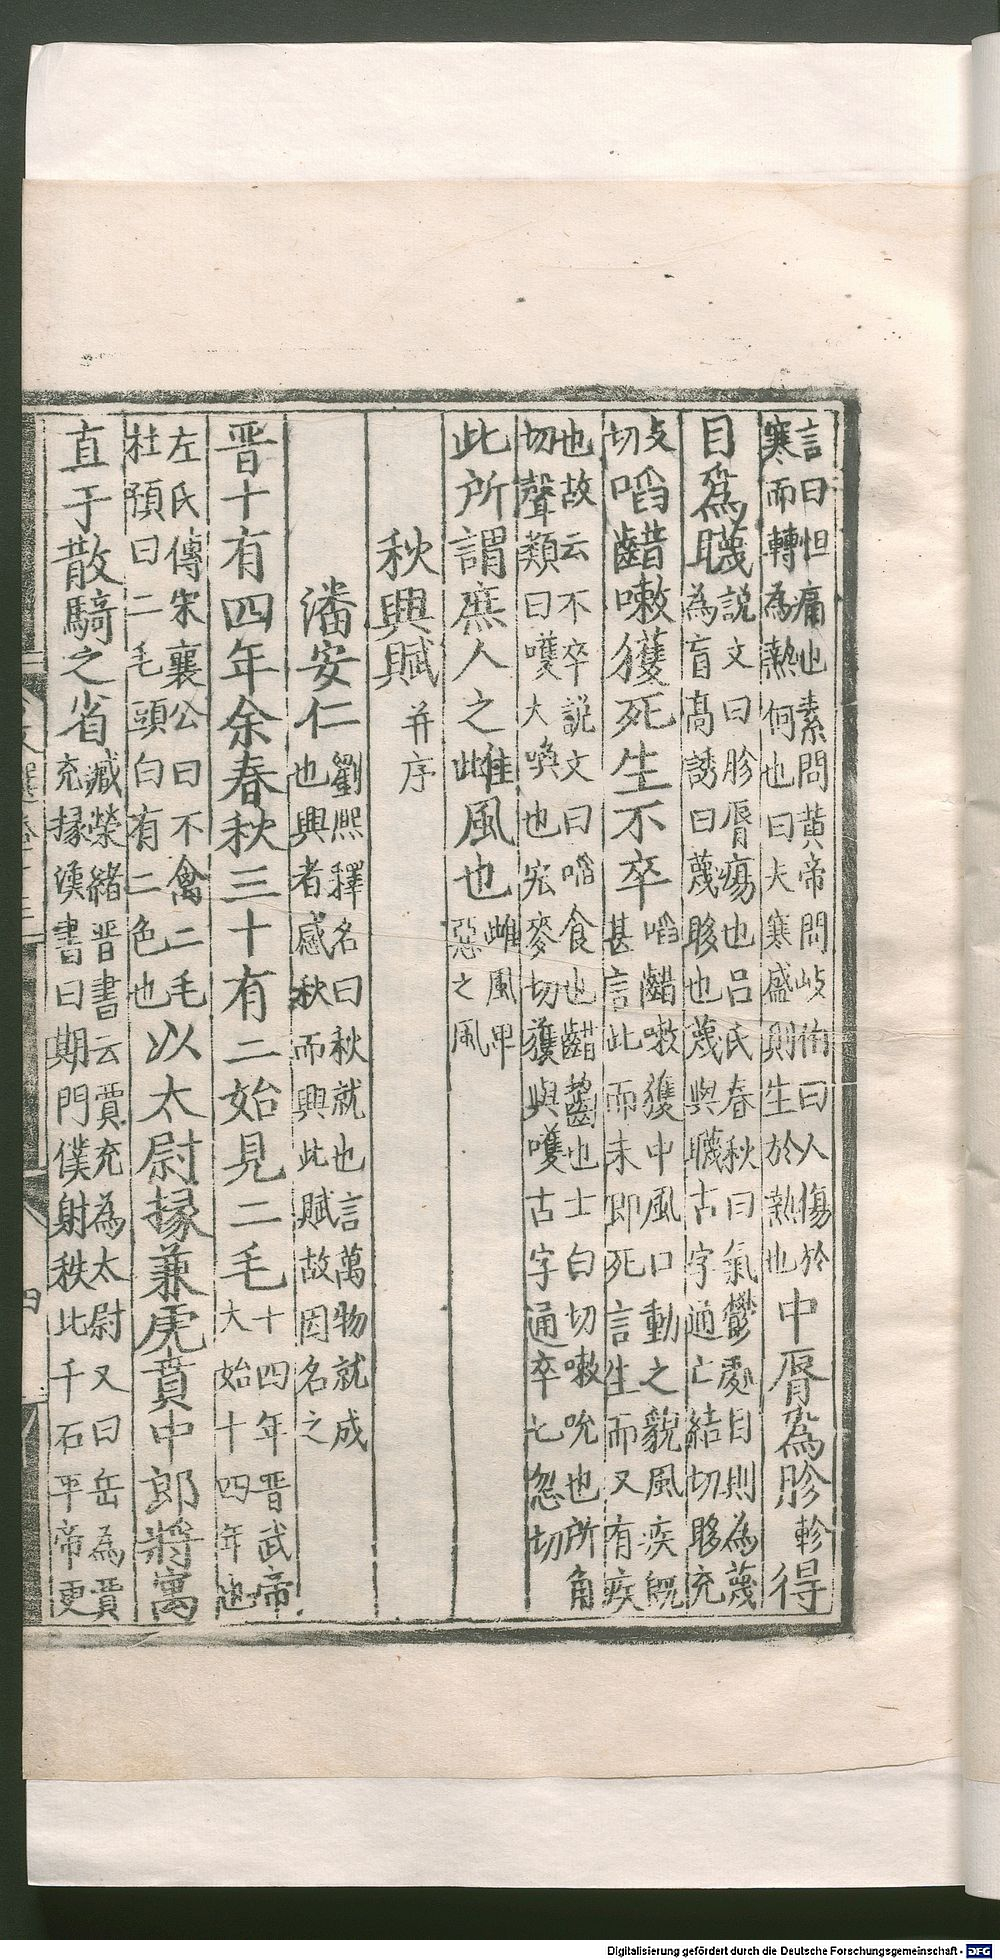 言曰怛痛也素問黃帝問岐伯曰人傷於
寒而轉為熱何也曰夫寒盛則生於熱也
中脣為胗軫得
目爲䁾
說文曰胗脣瘍也呂氏春秋曰氣鬱處目則為䁾
為盲高誘曰䁾眵也䁾與䁾古字通亡結切眵充
支
切
啗齰嗽獲死生不卒
啗齰嗽獲中風口動之貌風疾既
甚言此而未即死言生而又有疾
也故云不卒說文曰啗食也齰齧也士白切嗽吮也所角
切聲類曰嚄大喚也宏麥切獲與嚄古字通卒七忽切
此所謂庶人之雌風也
雌風卑
惡之風
秋興賦
并序
潘安仁
劉熙釋名曰秋就也言萬物就成
也興者感秋而興此賦故因名之
晉十有四年余春秋三十有二始見二毛
十四年晉武帝
大始十四年也
左氏傳宋襄公曰不禽二毛
杜預曰二毛頭白有二色也
以太尉掾兼虎賁中郎將寓
直于散騎之省
臧榮緒晉書云賈充為太尉又曰岳為賈
充掾漢書曰期門僕射秩比千石平帝更
四
Digitalisierung gefördert durch die Deutsche Forschungsgemeinschaft - DFG